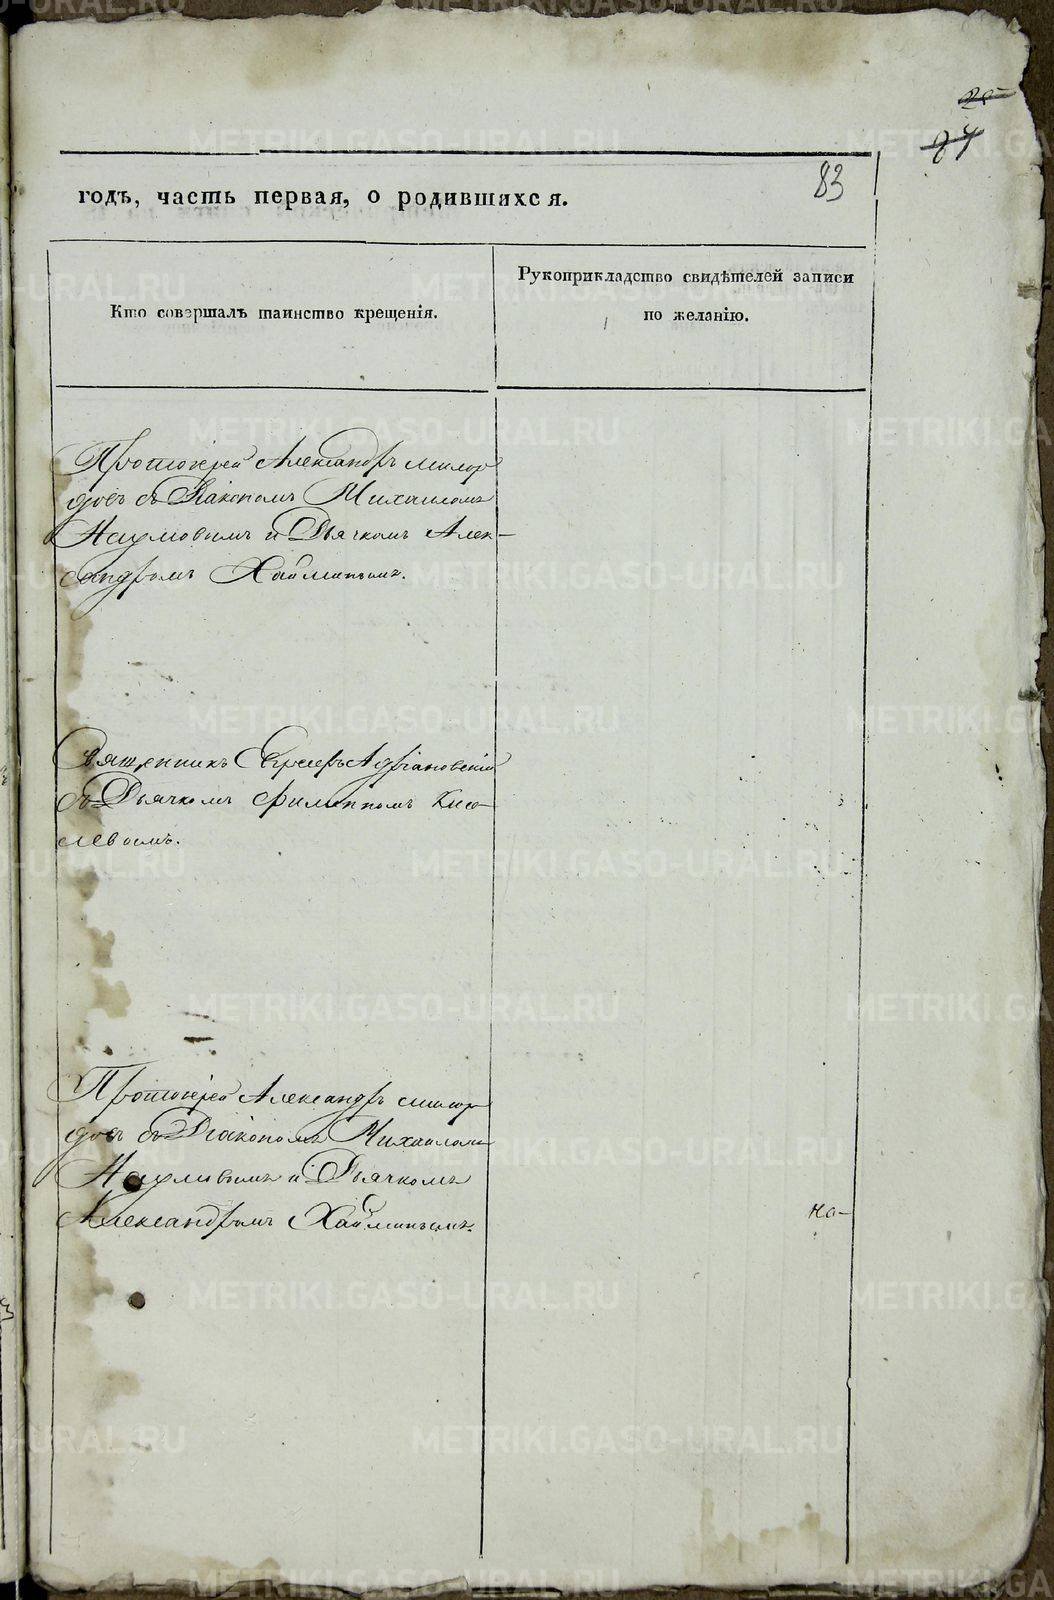 83
годъ, часть первая, о родившихся.
Кто совершалъ таинство крещенія.
Рукоприкладство свидѣтелей записи
по желанію.
Протоіерей Александръ Милор
довъ съ Діакономъ Михаиломъ
Наумовымъ и Дьячкомъ Алек-
сандромъ Хайминымъ.
Священникъ
съ Дьячкомъ Филиппомъ Кисе-
левымъ.
Протоіерей Александръ Милор
довъ съ Діакономъ Михаиломъ
Наумовымъ и Дьячкомъ
Александромъ Хайминымъ.
на-
METRIKI.GASO-URAL.RU